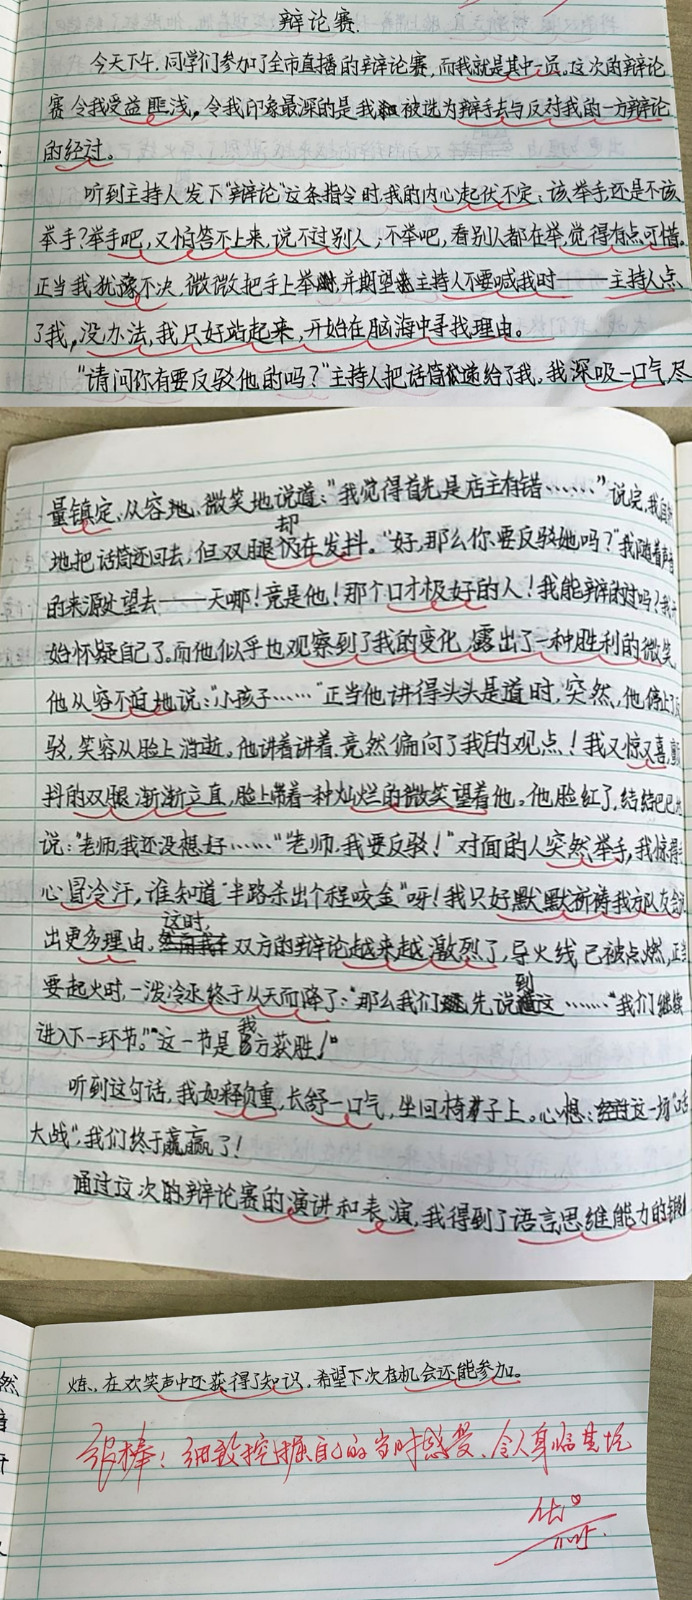 辩论赛.
今天下午,同学们参加了全市直播的辩论赛,而我就是其中一员。这次的辩论
赛令我受益匪浅。令我印象最深的是我被选为辩手去与反对我的一方辩论
的经过。
听到主持人发下“辩论”这条指令时,我的内心起伏不定:该举手还是不该
举手?举手吧,又怕答不上来,说不过别人;不举吧,看别人都在举,觉得有点可惜。
正当我犹豫不决,微微把手上举并期望主持人不要喊我时——主持人点
了我,没办法,我只好站起来,开始在脑海中寻找理由。
“请问你有要反驳他的吗?”主持人把话筒递给了我,我深吸一口气,尽
量镇定、从容地、微笑地说道:“我觉得首先是店主有错……”说完,我
地把话筒还回去,但双腿却仍在发抖。“好,那么你要反驳她吗?”我随着声音
的来源处望去——天哪!竟是他!那个口才极好的人!我能辩的过吗?我
始怀疑自己了。而他似乎也观察到了我的变化,露出了一种胜利的微笑
他从容不迫地说:“小孩子……”正当他讲得头头是道时,突然,他停止了
驳,笑容从脸上消逝。他讲着讲着,竟然偏向了我的观点!我又惊又喜,
抖的双腿渐渐立直,脸上带着一种灿烂的微笑望着他。他脸红了,结结巴巴地
说:“老师,我还没想好……”“老师,我要反驳!”对面的人突然举手,我惊得手
心冒冷汗,谁知道“半路杀出个程咬金”呀!我只好默默祈祷我方队友会
出更多理由,这时,双方的辩论越来越激烈了,导火线已被点燃,正当
要起火时,一泼冷水终于从天而降了:“那么我们先说到这……”“我们继续
进入下一环节。”“这一节是我方获胜!”
听到这句话,我如释负重,长舒一口气,坐回椅子上。心想:这一场“口舌
大战”,我们终于赢了!
通过这次的辩论赛的演讲和表演,我得到了语言思维能力的锻
炼,在欢笑声中还获得了知识,希望下次有机会还能参加。
很棒!细致挖掘自己的当时感受、令人身临其境
优